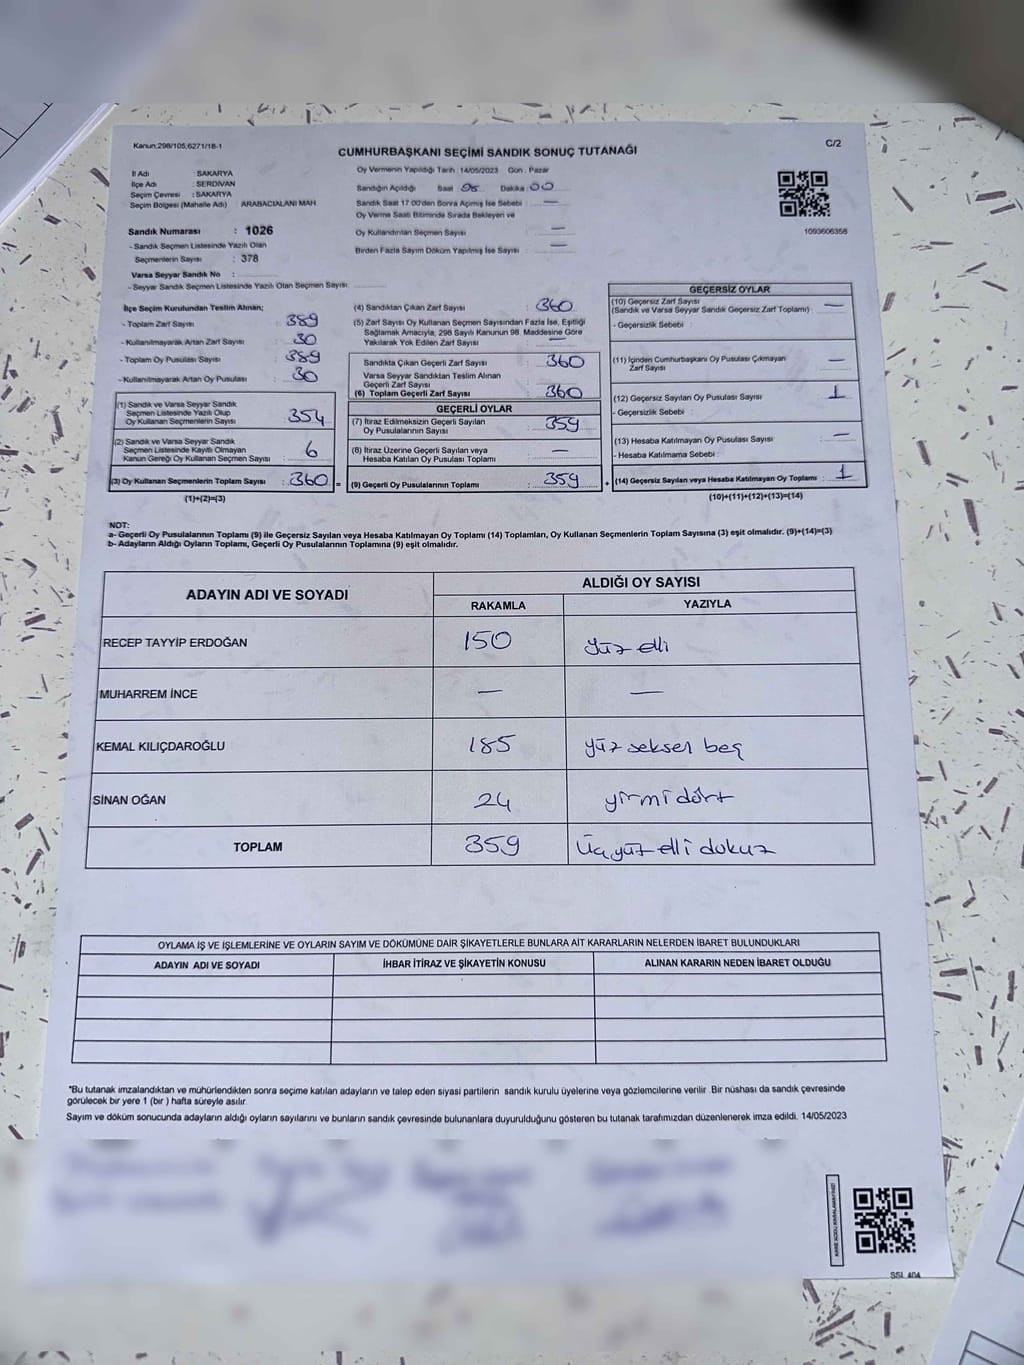 Kanun;298/105,6271/18-1
C/2
CUMHURBAŞKANI SEÇİMİ SANDIK SONUÇ TUTANAĞI
İl Adı : SAKARYA
İlçe Adı : SERDİVAN
Seçim Çevresi : SAKARYA
Seçim Bölgesi (Mahalle Adı) ARABACIALANI MAH.
Oy Vermenin Yapıldığı Tarih : 14/05/2023 Gün : Pazar
Sandığın Açıldığı Saat : 08 Dakika : 00
Sandık Saat 17:00'den Sonra Açılmış İse Sebebi : —
Oy Verme Saati Bitiminde Sırada Bekleyen ve
Oy Kullandırılan Seçmen Sayısı : —
Birden Fazla Sayım Döküm Yapılmış İse Sayısı : —
1093606358
Sandık Numarası : 1026
- Sandık Seçmen Listesinde Yazılı Olan
Seçmenlerin Sayısı : 378
Varsa Seyyar Sandık No :
- Seyyar Sandık Seçmen Listesinde Yazılı Olan Seçmen Sayısı :
İlçe Seçim Kurulundan Teslim Alınan;
- Toplam Zarf Sayısı : 389
- Kullanılmayarak Artan Zarf Sayısı : 30
- Toplam Oy Pusulası Sayısı : 389
- Kullanılmayarak Artan Oy Pusulası : 30
(1) Sandık ve Varsa Seyyar Sandık
Seçmen Listesinde Yazılı Olup
Oy Kullanan Seçmenlerin Sayısı : 354
(2) Sandık ve Varsa Seyyar Sandık
Seçmen Listesinde Kayıtlı Olmayan
Kanun Gereği Oy Kullanan Seçmen Sayısı : 6
(3) Oy Kullanan Seçmenlerin Toplam Sayısı : 360 =
(1)+(2)=(3)
(4) Sandıktan Çıkan Zarf Sayısı : 360
(5) Zarf Sayısı Oy Kullanan Seçmen Sayısından Fazla İse, Eşitliği
Sağlamak Amacıyla, 298 Sayılı Kanunun 98. Maddesine Göre
Yakılarak Yok Edilen Zarf Sayısı : —
Sandıkta Çıkan Geçerli Zarf Sayısı : 360
Varsa Seyyar Sandıktan Teslim Alınan
Geçerli Zarf Sayısı
(6) Toplam Geçerli Zarf Sayısı : 360
GEÇERLİ OYLAR
(7) İtiraz Edilmeksizin Geçerli Sayılan
Oy Pusulalarının Sayısı : 359
(8) İtiraz Üzerine Geçerli Sayılan veya
Hesaba Katılan Oy Pusulası Toplamı : —
(9) Geçerli Oy Pusulalarının Toplamı : 359 +
GEÇERSİZ OYLAR
(10) Geçersiz Zarf Sayısı
(Sandık ve Varsa Seyyar Sandık Geçersiz Zarf Toplamı) : —
- Geçersizlik Sebebi :
(11) İçinden Cumhurbaşkanı Oy Pusulası Çıkmayan
Zarf Sayısı : —
(12) Geçersiz Sayılan Oy Pusulası Sayısı : 1
- Geçersizlik Sebebi :
(13) Hesaba Katılmayan Oy Pusulası Sayısı : —
- Hesaba Katılmama Sebebi :
(14) Geçersiz Sayılan veya Hesaba Katılmayan Oy Toplamı : 1
(10)+(11)+(12)+(13)=(14)
NOT:
a- Geçerli Oy Pusulalarının Toplamı (9) ile Geçersiz Sayılan veya Hesaba Katılmayan Oy Toplamı (14) Toplamları, Oy Kullanan Seçmenlerin Toplam Sayısına (3) eşit olmalıdır. (9)+(14)=(3)
b- Adayların Aldığı Oyların Toplamı, Geçerli Oy Pusulalarının Toplamına (9) eşit olmalıdır.
ADAYIN ADI VE SOYADI
ALDIĞI OY SAYISI
RAKAMLA YAZIYLA
RECEP TAYYİP ERDOĞAN 150 yüz elli
MUHARREM İNCE — —
KEMAL KILIÇDAROĞLU 185 yüz seksen beş
SİNAN OĞAN 24 yirmi dört
TOPLAM 359 Üç yüz elli dokuz
OYLAMA İŞ VE İŞLEMLERİNE VE OYLARIN SAYIM VE DÖKÜMÜNE DAİR ŞİKAYETLERLE BUNLARA AİT KARARLARIN NELERDEN İBARET BULUNDUKLARI
ADAYIN ADI VE SOYADI İHBAR İTİRAZ VE ŞİKAYETİN KONUSU ALINAN KARARIN NEDEN İBARET OLDUĞU
*Bu tutanak imzalandıktan ve mühürlendikten sonra seçime katılan adayların ve talep eden siyasi partilerin sandık kurulu üyelerine veya gözlemcilerine verilir. Bir nüshası da sandık çevresinde
görülecek bir yere 1 (bir ) hafta süreyle asılır.
Sayım ve döküm sonucunda adayların aldığı oyların sayılarını ve bunların sandık çevresinde bulunanlara duyurulduğunu gösteren bu tutanak tarafımızdan düzenlenerek imza edildi. 14/05/2023
KARE KODU KARALAMAYINIZ!
SSİ 404